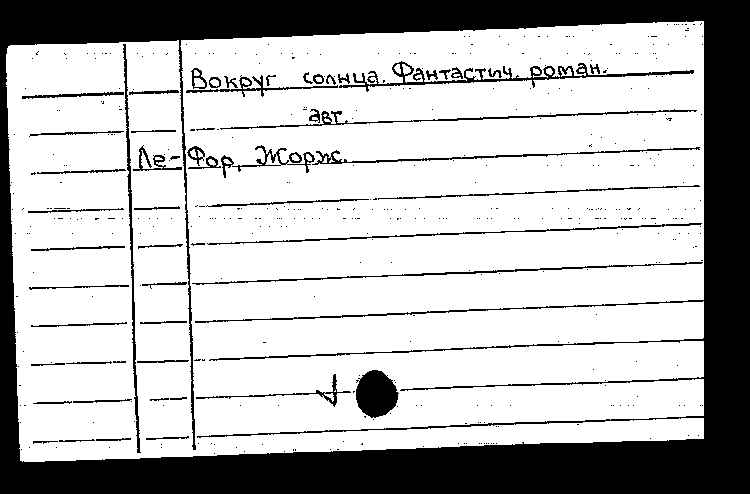 Вокруг солнца. Фантастич. роман.
авт.
Ле-Фор, Жорж.